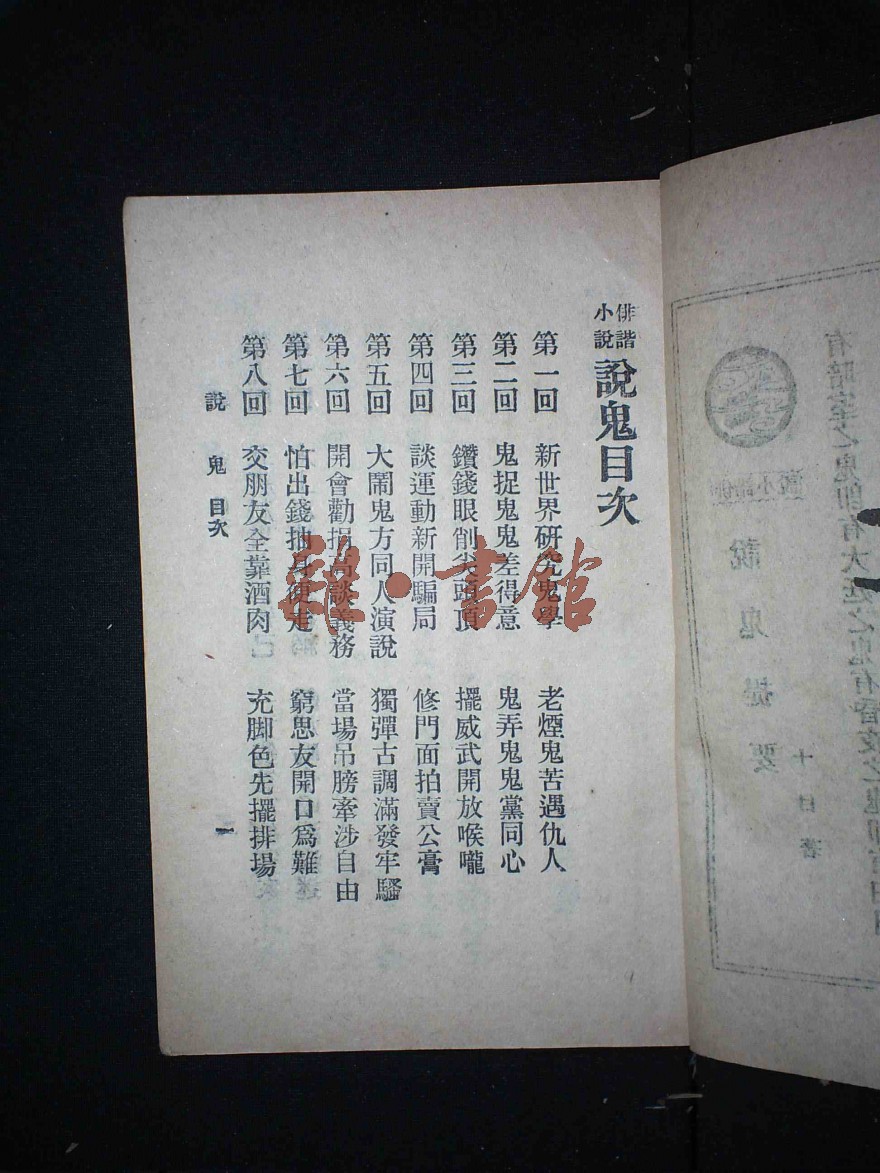 俳諧小說
說鬼目次
第一回 新世界研究鬼學 老煙鬼苦遇仇人
第二回 鬼捉鬼鬼差得意 鬼弄鬼鬼黨同心
第三回 鑽錢眼削尖頭頂 擺威武開放喉嚨
第四回 談運動新開騙局 修門面拍賣公膏
第五回 大鬧鬼方同人演說 獨彈古調滿發牢騷
第六回 開會勸捐高談義務 當場吊膀牽涉自由
第七回 怕出錢抽身便走 窮思友開口爲難
第八回 交朋友全靠酒肉 充脚色先擺排塲
說鬼 目次
一
書館
說鬼提要